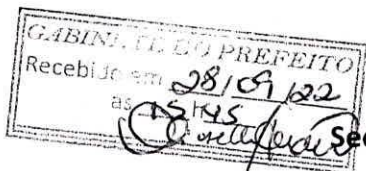 GABINETE DO PREFEITO
Recebido em 28/09/22
as 15H45
Sec